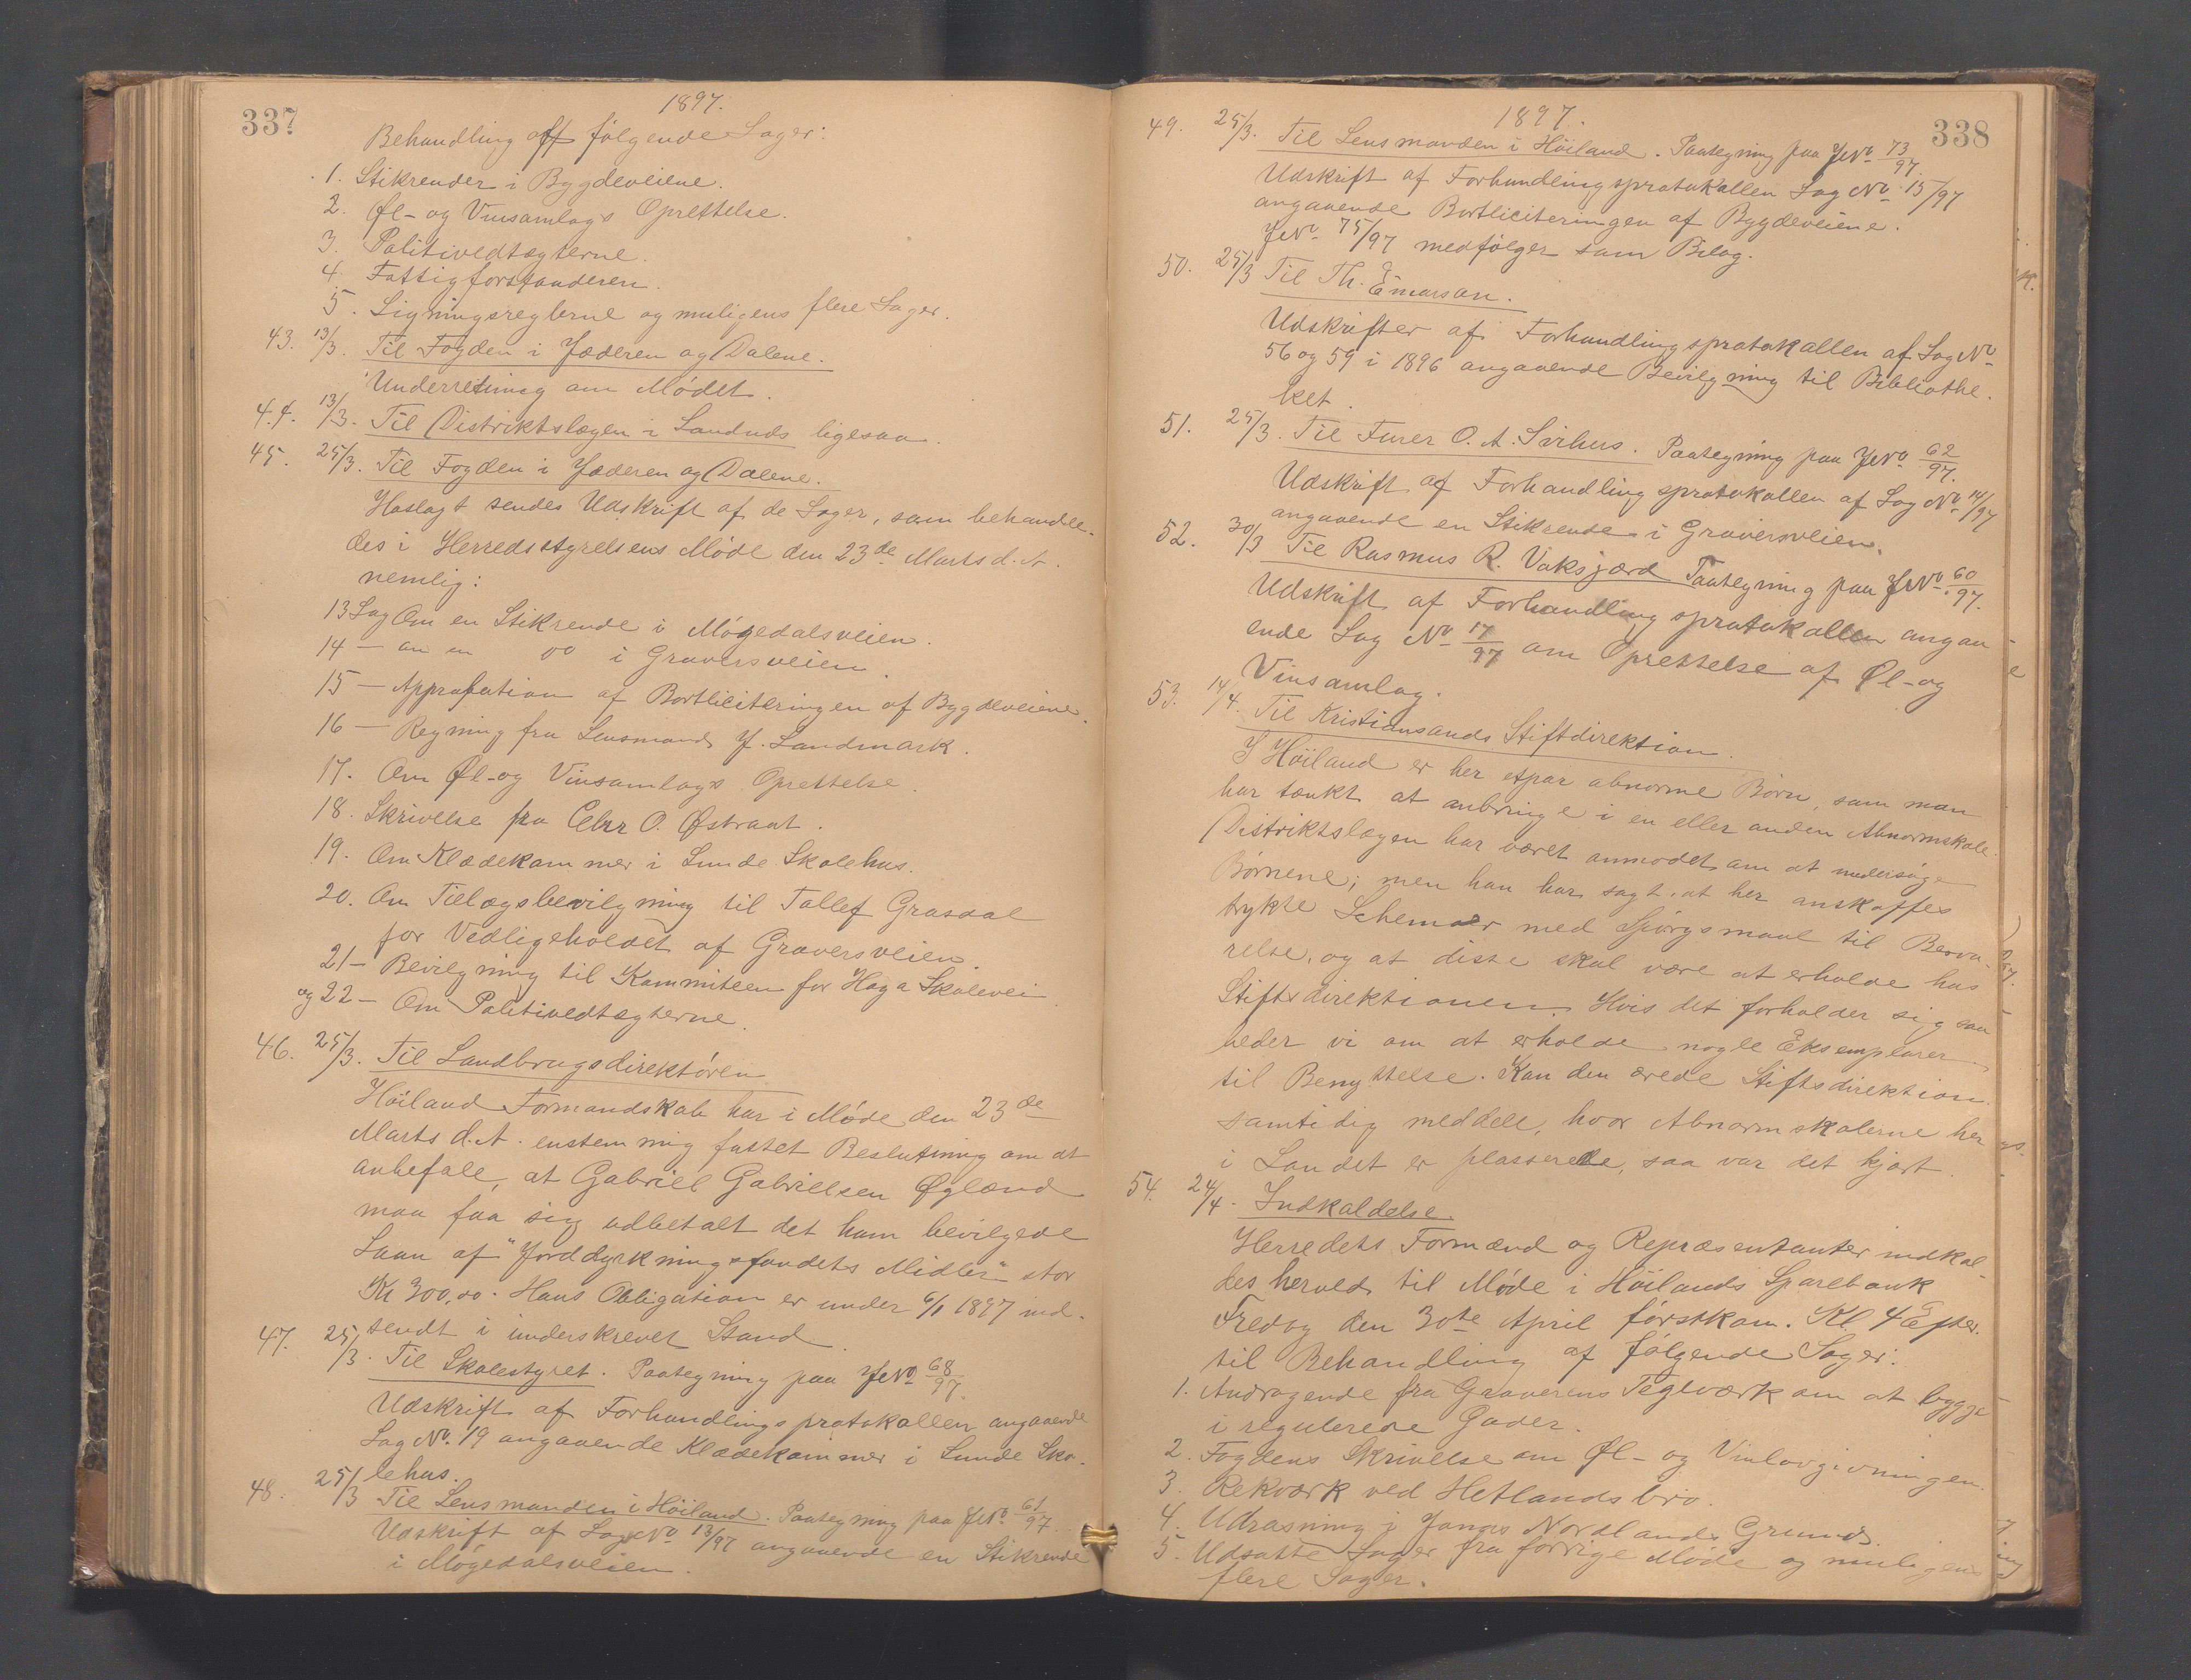 337
1897.
Behandling aff følgende Sager:
1. Stikrender i Bygdeveiene.
2. Øl- og Vinsamlags Oprettelse.
3. Politivedtægterne.
4. Fattigforstanderen.
5. Ligningsreglerne og muligens flere Sager.
43. 13/3. Til Fogden i Jæderen og Dalene.
Underretning om Mødet.
44. 13/3. Til Distriktslægen i Sandnæs ligesaa.
45. 25/3. Til Fogden i Jæderen og Dalene.
Hoslagt sendes Udskrift af de Sager, som behandle-
des i Herredsstyrelsens Møde den 23de Marts d. A.
nemlig:
13 Sag Om en Stikrende i Møgedalsveien.
14 — om en do i Graversveien
15 — Approbation af Bortliciteringen af Bygdeveiene.
16 — Regning fra Lensmand J. Landmark.
17. Om Øl- og Vinsamlags Oprettelse.
18. Skrivelse fra Elev O. Østraat.
19. Om Klædekammer i Lunde Skolehus.
20. Om Tillægsbevilgning til Tollef Grasdal
for Vedligeholdet af Graversveien.
21 — Bevilgning til Kommiteen for Hoga Skolevei.
og 22 — Om Politivedtægterne.
46. 25/3. Til Landbrugsdirektøren
Høiland Formandskab har i Møde den 23de
Marts d. A. enstemmig fattet Beslutning om at
anbefale, at Gabriel Gabrielsen Øglænd
maa faa sig udbetalt det ham bevilgede
Laan af "Jorddyrkningsfondets Midler" stor
Kr 300,00. Hans Obligation er under 6/1 1897 ind-
sendt i underskrevet Stand.
47. 25/3. Til Skolestyret. Paategning paa JNo 68/97.
Udskrift af Forhandlingsprotokollen angaaende
Sag No. 19 angaaende Klædekammer i Lunde Sko-
lehus.
48. 25/3 Til Lensmanden i Höiland. Paategning paa JNo. 61/97.
Udskrift af Sag No 13/97 angaaende en Stikrende
i Møgedalsveien.
338
1897.
49. 25/3. Til Lensmanden i Höiland. Paategning paa JNo 73/97.
Udskrift af Forhandlingsprotokollen Sag No. 15/97
angaaende Bortliciteringen af Bygdeveiene.
JNo. 75/97 medfølger som Bilag.
50. 25/3 Til Th. Emarson.
Udskrifter af Forhandlingsprotokollen af Sag No
56 og 59 i 1896 angaaende Bevilgning til Bibliothe-
ket.
51. 25/3. Til Furer O. A. Sirhus. Paategning paa JNo 62/97.
Udskrift af Forhandlingsprotokollen af Sag No 14/97
angaaende en Stikrende i Graversveien.
52. 30/3 Til Rasmus R. Vaksjærd Paategning paa JNo. 60/97.
Udskrift af Forhandlingsprotokollen angaa-
ende Sag No 17/97 om Oprettelse af Øl- og
Vinsamlag.
53. 14/4. Til Kristiansands Stiftdirektion.
I Höiland er her etpar abnorme Børn, som man
har tænkt at anbringe i en eller anden Abnormskole.
Distriktslægen har været anmodet om at undersøge
Børnene; men han har sagt, at her anskaffes
trykte Schemaer med Spørgsmaal til Besva-
relse, og at disse skal være at erholde hos
Stiftsdirektionen. Hvis det forholder sig saa
beder vi om at erholde nogle Eksemplarer
til Benyttelse. Kan den ærede Stiftsdirektion
samtidig meddele, hvor Abnormskolerne her
i Landet er plasserede, saa var det kjært.
54. 24/4. Indkaldelse.
Herredets Formænd og Repræsentanter indkal-
des herved til Møde i Höilands Sparebank
Fredag den 30te April førstkom. Kl 4 Efter.
til Behandling af følgende Sager:
1. Andragende fra Graverens Teglværk om at bygge
i regulerede Gader.
2. Fogdens Skrivelse om Øl- og Vinlovgivningen.
3. Rekværk ved Hetlandsbro.
4. Udrasning i Jonas Nordlands Grund.
5. Udsatte Sager fra forrige Møde og muligens
flere Sager.